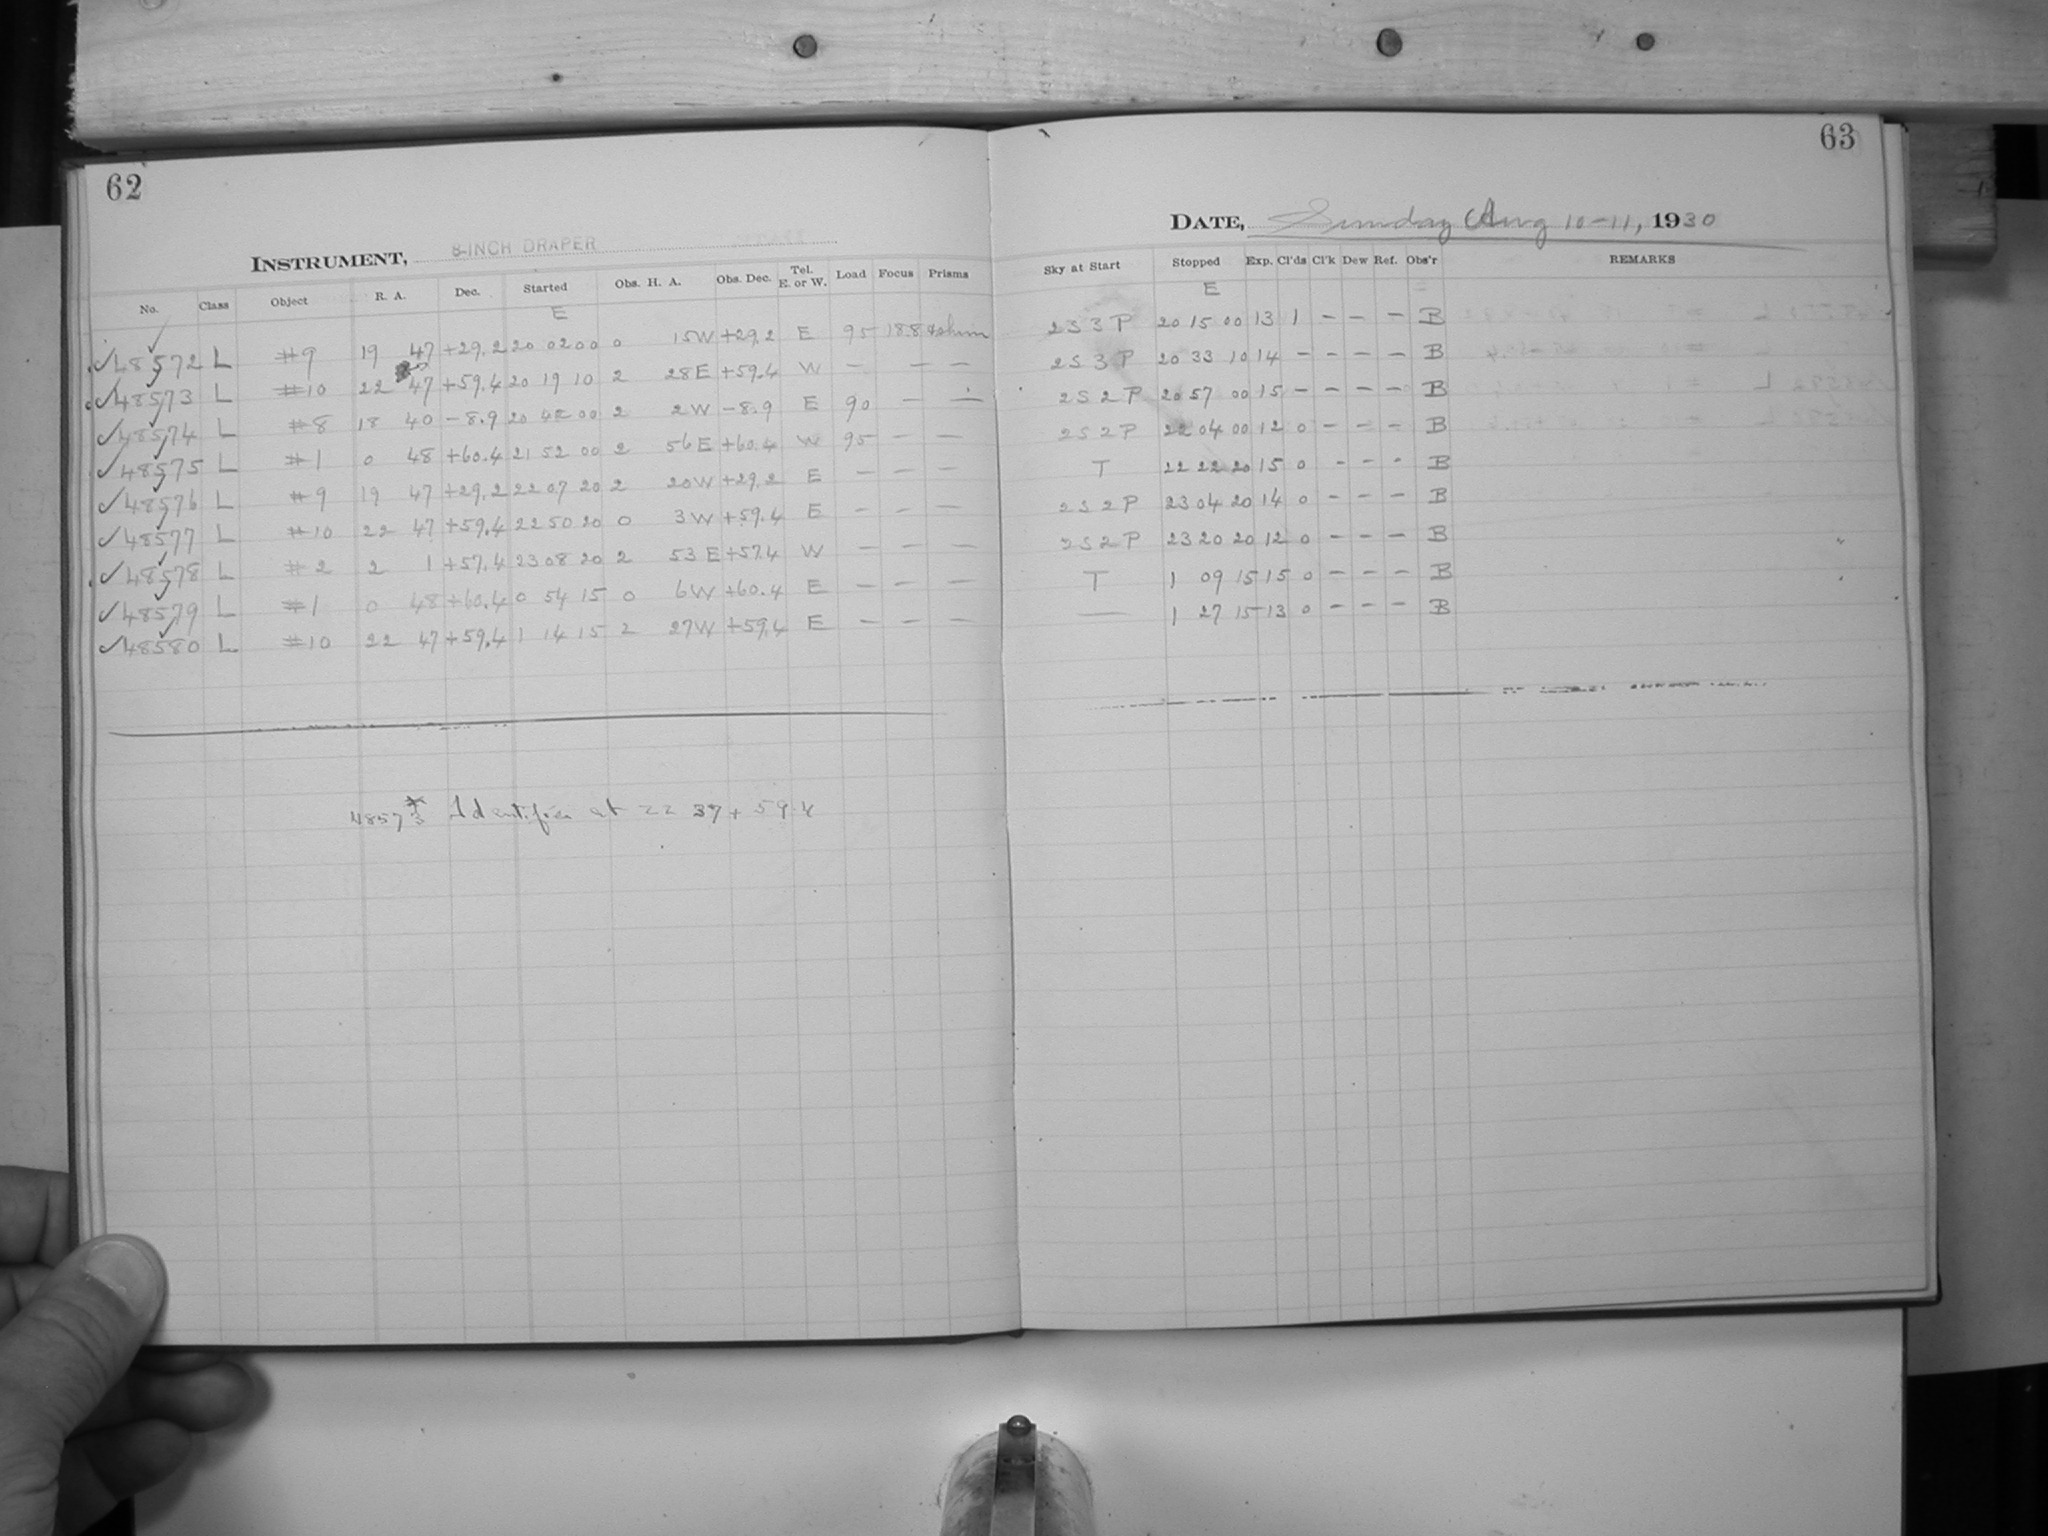 62
INSTRUMENT, 8-INCH DRAPER
No. Class Object R. A. Dec. Started Obs. H. A. Obs. Dec. Tel. E. or W. Load Focus Prisms
E
48572 L #9 19 47 +29.2 20 02 00 0 15W +29.2 E 95 188
48573 L #10 22 47 +59.4 20 19 10 2 28E +59.4 W — — —
48574 L #8 18 40 -8.9 20 42 00 2 2W -8.9 E 90 — —
48575 L #1 0 48 +60.4 21 52 00 2 56E +60.4 W 95 — —
48576 L #9 19 47 +29.2 22 07 20 2 20W +29.2 E — — —
48577 L #10 22 47 +59.4 22 50 20 0 3W +59.4 E — — —
48578 L #2 2 1 +57.4 23 08 20 2 53E +57.4 W — — —
48579 L #1 0 48 +60.4 0 54 15 0 6W +60.4 E — — —
48580 L #10 22 47 +59.4 1 14 15 2 27W +59.4 E — — —
at 22 37 + 59.4
63
DATE, Sunday Aug 10-11, 1930
Sky at Start Stopped Exp. Cl'ds Cl'k Dew Ref. Obs'r REMARKS
E
2 S 3 P 20 15 00 13 1 — — — B
2 S 3 P 20 33 10 14 — — — — B
2 S 2 P 20 57 00 15 — — — — B
2 S 2 P 22 04 00 12 0 — — — B
T 22 22 20 15 0 - - - B
2 S 2 P 23 04 20 14 0 - - - B
2 S 2 P 23 20 20 12 0 - - - B
T 1 09 15 15 0 - - - B
— 1 27 15 13 0 - - - B